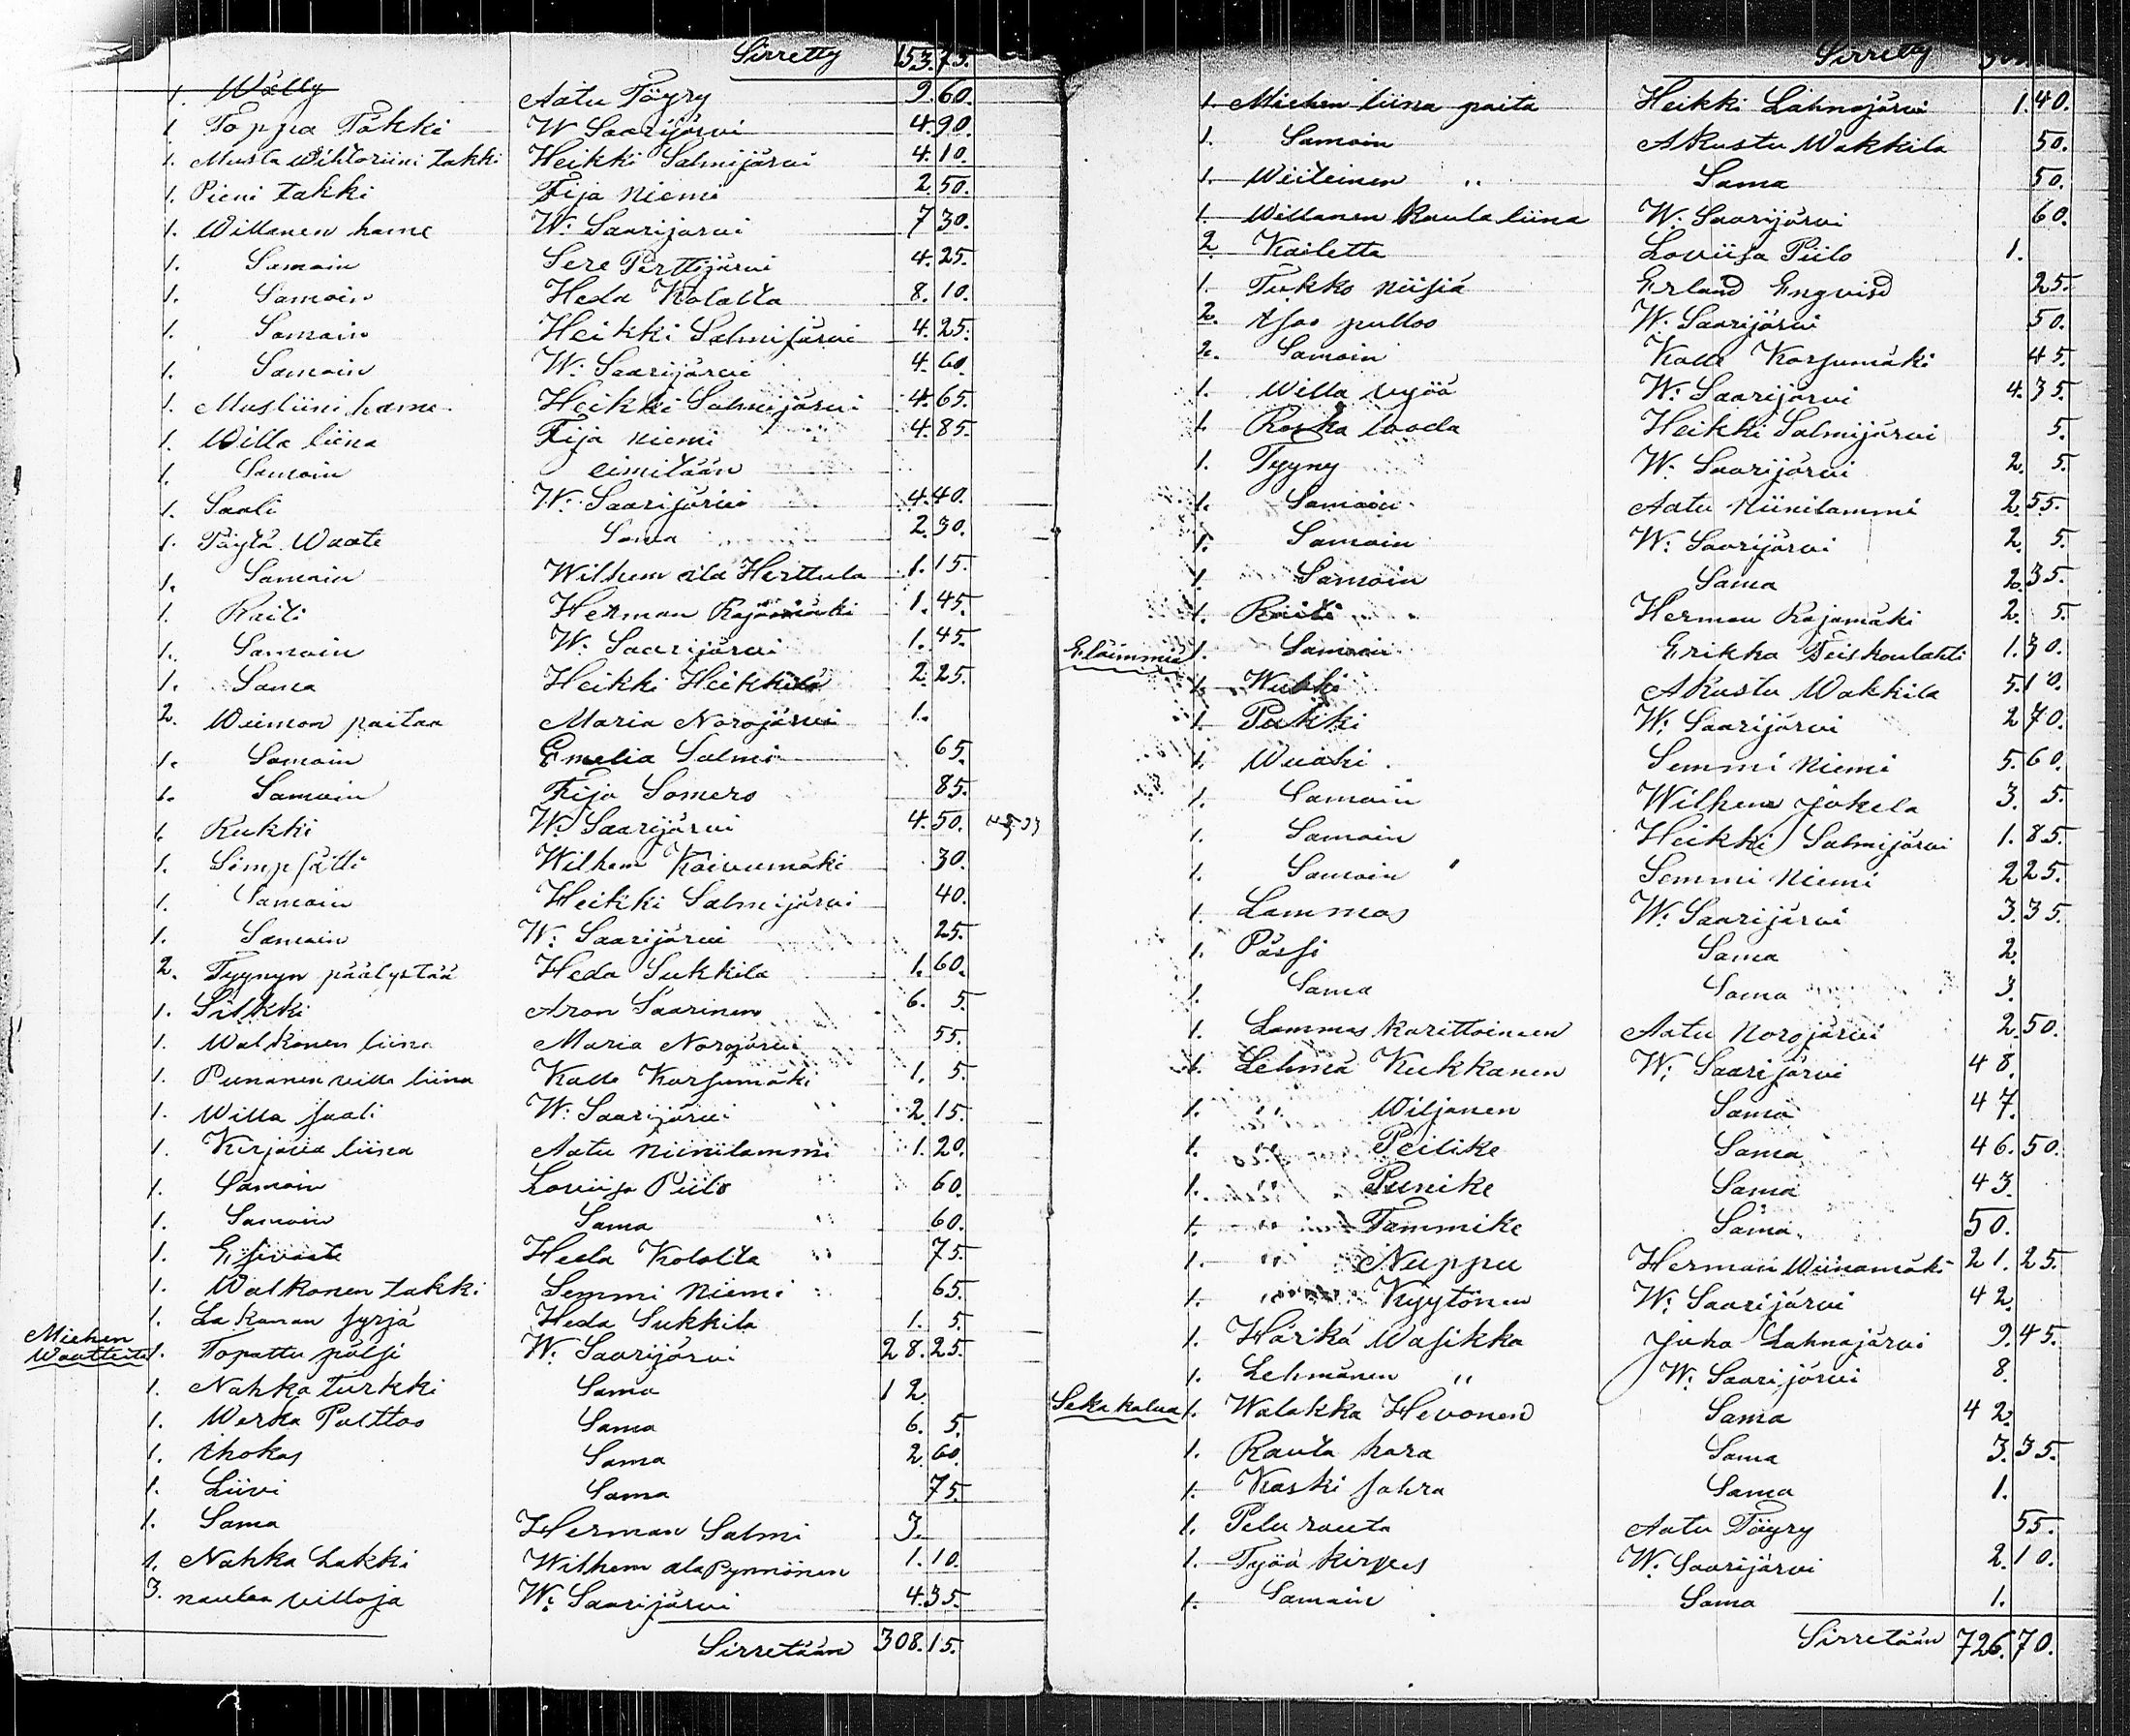 Sirretty 153.75.
1. Wälly Aatu Töyry 9.60.
1. Toppa Takki W Saarijärvi 4.90.
1. Musta Wihtoriini takki Heikki Salmijärvi 4.10.
1. Pieni takki Fija Niemi 2.50.
1. Willanen hame W: Saarijärvi 7.30.
1. Samoin Sere Perttijärvi 4.25.
1. Samoin Heda Kolatta 8.10.
1. Samoin Heikki Salmijärvi 4.25.
1. Samoin W: Saarijärvi 4.60.
1. Musliini hame Heikki Salmijärvi 4.65.
1. Willa liina Fija Niemi 4.85.
1. Samoin eimitään
1. Saali W: Saarijärvi 4.40.
1. Täytä Waate Sama 2.30.
1. Samoin Wilhem ala Herttula 1.15.
1. Raiti Herman Rajamäki 1.45.
1. Samoin W. Saarijärvi 1.45.
1. Sama Heikki Heikkilä 2.25.
2. Weimon paitaa Maria Norojärvi 1.
1. Samoin Emelia Salmi 65.
1. Samoin Fija Somero 85.
1. Rukki W. Saarijärvi 4.50.
1. Simpsätti Wilhem Koivumäki 30.
1. Samoin Heikki Salmijärvi 40.
1. Samoin W: Saarijärvi 25.
2. Tyynyn päälystää Heda Sukkila 1.60.
1. Silkki Aron Saarinen 6. 5.
1. Walkonen liina Maria Norojärvi 55.
1. Punanen villa liina Kalle Korsumäki 1. 5.
1. Willa saali W: Saarijärvi 2.15.
1. Kirjava liina Aatu Niinilammi 1.20.
1. Samoin Loviisa Piilo 60.
1. Samoin Sama 60.
1. Esivaate Heda Kolatta 75.
1. Walkonen takki Semmi Niemi 65.
1. Lakanan syrjä Heda Sukkila 1. 5.
Miehen
Waatteita 1. Topattu pälsi W: Saarijärvi 28.25.
1. Nahka turkki Sama 12.
1. Werka Palttoo Sama 6. 5.
1. Ihokas Sama 2.60.
1. Liivi Sama 75.
1. Sama Herman Salmi 3.
1. Nahka Lakki Wilhem ala Pynnönen 1.10.
3. naulaa villoja W: Saarijärvi 4.35.
Sirretään 308.15.
Sirretty
1. Miehen liina paita Heikki Lahnajärvi 1.40.
1. Samoin Akustu Wakkila 50.
1. Weiteinen " Sama 50.
1. Willanen Kaula liina W: Saarijärvi 60.
2. Kailetta Loviisa Piilo 1.
1. Tukko niisiä Erland Enqvisd 25.
2. Isoo pulloo W: Saarijärvi 50.
2. Samoin Kalle Korsumäki 45.
1. Willa vyöä W: Saarijärvi 4.35.
1. Roska laada Heikki Salmijärvi 5.
1. Tyyny W. Saarijärvi 2. 5.
1. Samoin Aatu Niinilammi 2.55.
1. Samoin W: Saarijärvi 2. 5.
1. Samoin Sama 2.35.
1. Raiti Herman Rajamäki 2. 5.
1. Samoin Erikka Teiskonlahti 1.30.
Eläimmiä
1. Wuhki Akustu Wakkila 5.10.
1. Pukki W: Saarijärvi 2.70.
1. Wuohi Semmi Niemi 5.60.
1. Samoin Wilhem Jokela 3. 5.
1. Samoin Heikki Salmijärvi 1.85.
1. Samoin Semmi Niemi 2.25.
1. Lammas W: Saarijärvi 3.35.
1. Pässi Sama 2.
1. Sama Sama 3.
1. Lammas Karittoineen Aatu Norojärvi 2.50.
1. Lehmä Kukkanen W: Saarijärvi 48.
1. " Wiljanen Sama 47.
1. " Peilike Sama 46.50.
1. " Punike Sama 43.
1. " Tammike Sama 50.
1. " Nuppu Herman Wiinamäki 21.25.
1. " Kyytönen W: Saarijärvi 42.
1. Härkä Wasikka Juha Lahnajärvi 9.45.
1. Lehmänen " W: Saarijärvi 8.
Seka kalua 1. Walakka Hevonen Sama 42.
1. Rauta hara Sama 3.35.
1. Kaski sahra Sama 1.
1. Pelu rauta Aatu Töyry 55.
1. Työä kirves W: Saarijärvi 2.10.
1. Samoin Sama 1.
Sirretään 726.70.